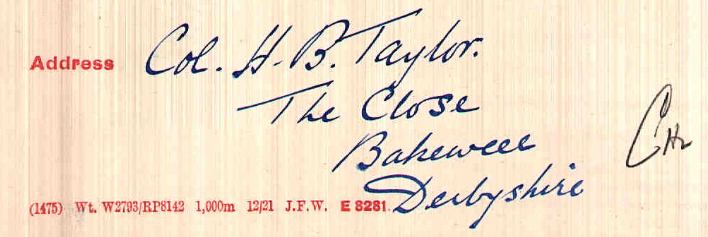 Address Col. H. B. Taylor.
The Close
Bakewell
Derbyshire
(1475) Wt. W2793/RP8142 1,000m 12/21 J.F.W. E 8281.